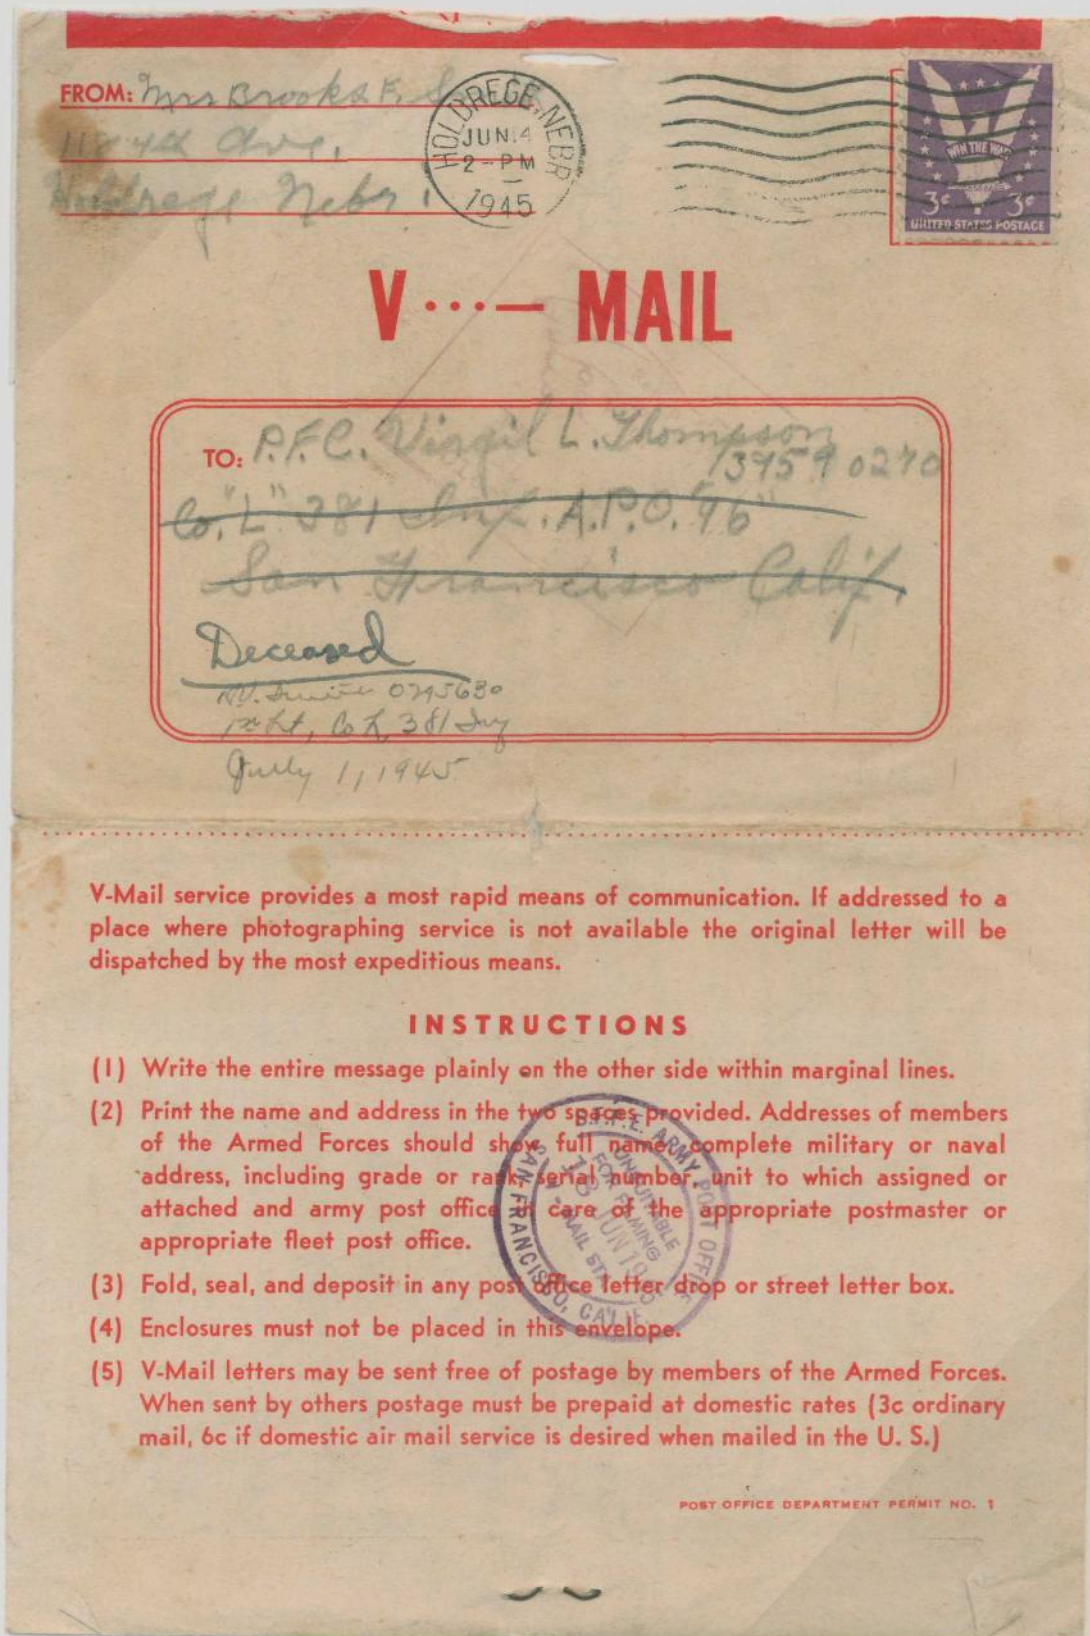 FROM: Mrs Brooks E.
4th Ave.
Holdrege Nebr.
HOLDREGE, NEBR
JUN 14
2 - PM
1945
WIN THE WAR
3¢ 3¢
UNITED STATES POSTAGE
V ···— MAIL
TO: P.F.C. Virgil L. Thompson
39590270
Co. "L" 381 Inf. A.P.O. 96
San Francisco Calif.
Deceased
0295630
1st Lt, Co L, 381 Inf
July 1, 1945
V-Mail service provides a most rapid means of communication. If addressed to a
place where photographing service is not available the original letter will be
dispatched by the most expeditious means.
INSTRUCTIONS
(1) Write the entire message plainly on the other side within marginal lines.
(2) Print the name and address in the two spaces provided. Addresses of members
of the Armed Forces should show full name, complete military or naval
address, including grade or rank, serial number, unit to which assigned or
attached and army post office in care of the appropriate postmaster or
appropriate fleet post office.
(3) Fold, seal, and deposit in any post office letter drop or street letter box.
(4) Enclosures must not be placed in this envelope.
(5) V-Mail letters may be sent free of postage by members of the Armed Forces.
When sent by others postage must be prepaid at domestic rates (3c ordinary
mail, 6c if domestic air mail service is desired when mailed in the U. S.)
ARMY POST OFFICE
SAN FRANCISCO, CALIF.
UNSUITABLE
FOR FILMING
18 JUN 1945
V-MAIL STA.
POST OFFICE DEPARTMENT PERMIT NO. 1